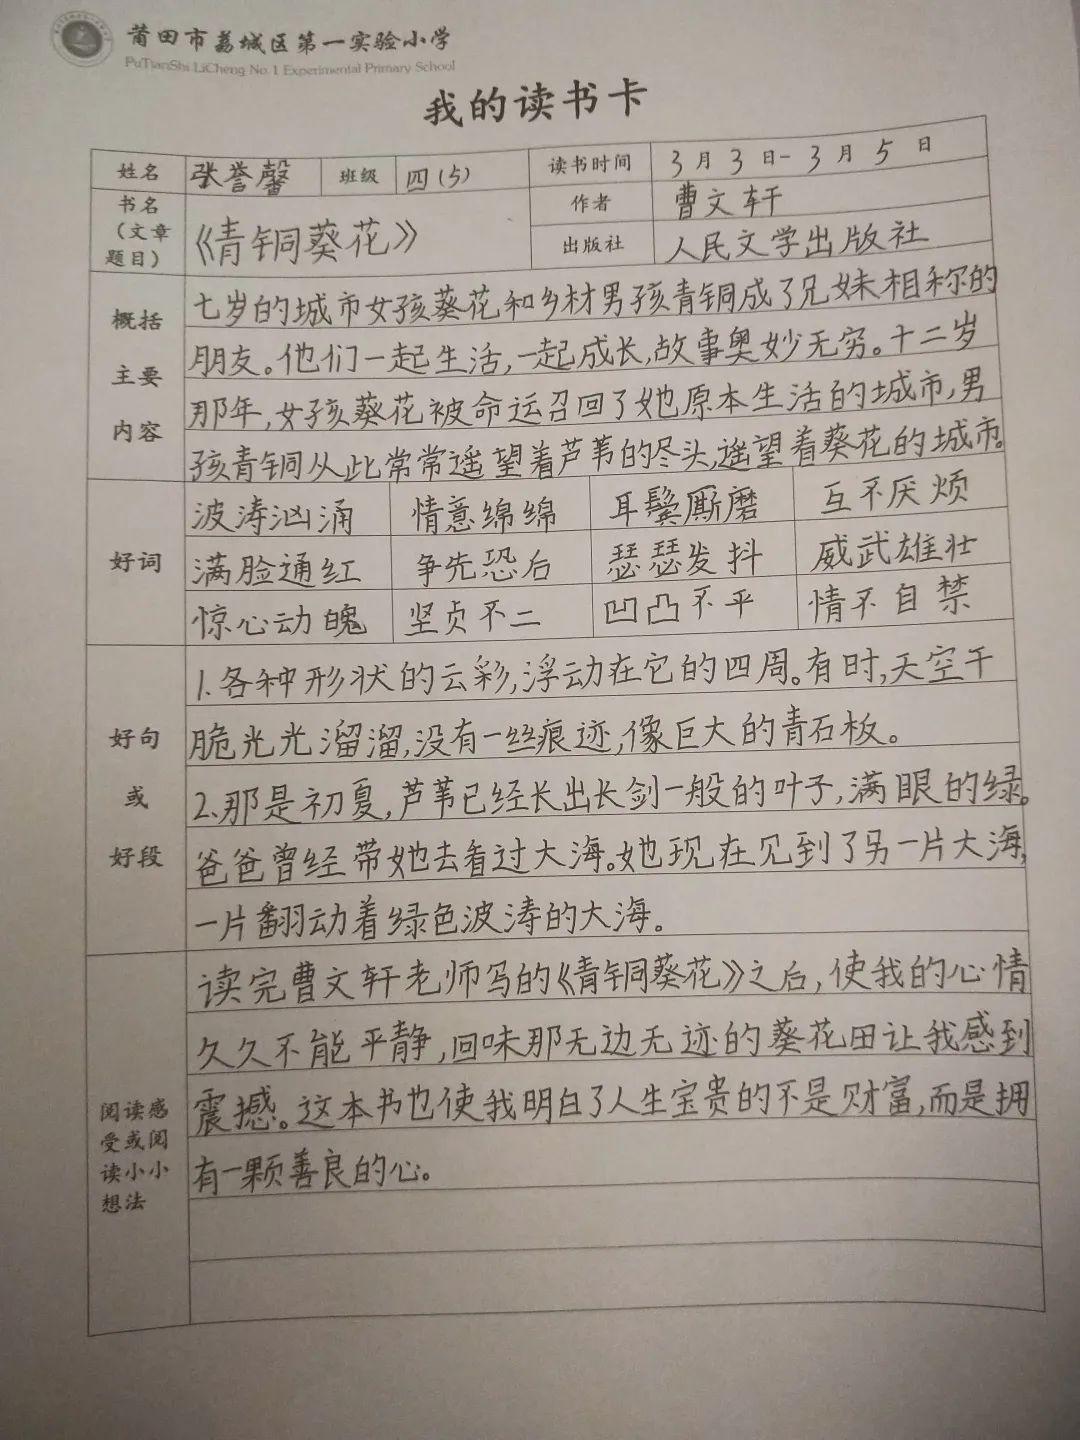 莆田市荔城区第一实验小学
PuTianShi LiCheng No.1 Experimental Primary School
我的读书卡
姓名 张誉馨 班级 四(5) 读书时间 3月3日-3月5日
书名（文章题目） 《青铜葵花》 作者 曹文轩
出版社 人民文学出版社
概括主要内容
七岁的城市女孩葵花和乡村男孩青铜成了兄妹相称的
朋友。他们一起生活,一起成长,故事奥妙无穷。十二岁
那年,女孩葵花被命运召回了她原本生活的城市,男
孩青铜从此常常遥望着芦苇的尽头,遥望着葵花的城市。
好词
波涛汹涌 情意绵绵 耳鬓厮磨 互不厌烦
满脸通红 争先恐后 瑟瑟发抖 威武雄壮
惊心动魄 坚贞不二 凹凸不平 情不自禁
好句或好段
1.各种形状的云彩,浮动在它的四周。有时,天空干
脆光光溜溜,没有一丝痕迹,像巨大的青石板。
2.那是初夏,芦苇已经长出长剑一般的叶子,满眼的绿。
爸爸曾经带她去看过大海。她现在见到了另一片大海,
一片翻动着绿色波涛的大海。
阅读感受或阅读小小想法
读完曹文轩老师写的《青铜葵花》之后,使我的心情
久久不能平静,回味那无边无迹的葵花田让我感到
震撼。这本书也使我明白了人生宝贵的不是财富,而是拥
有一颗善良的心。